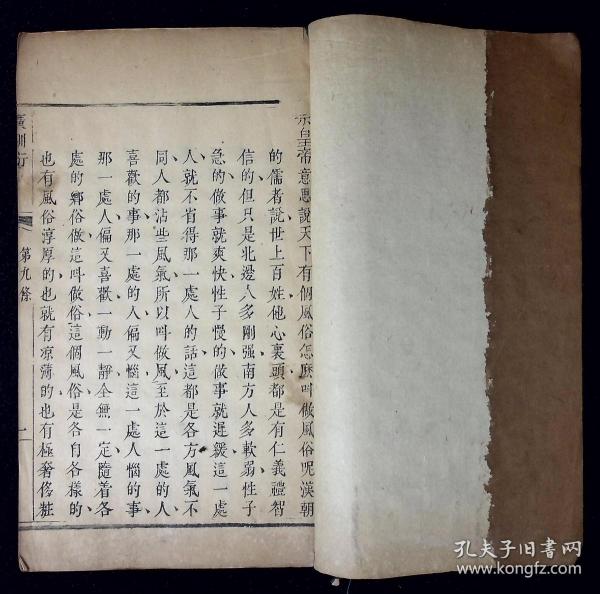 皇帝意思說天下有個風俗怎麽呌做風俗呢漢朝
的儒者說世上百姓他心裏頭都是有仁義禮智
信的但只是北邊人多剛强南方人多軟弱性子
急的做事就爽快性子慢的做事就遲緩這一處
人就不省得那一處人的話這都是各方風氣不
同人都沾些風氣所以呌做風至於這一處的人
喜歡的事那一處的人偏又惱這一處人惱的事
那一處人偏又喜歡一動一靜全無一定隨着各
處的鄉俗做這呌做俗這個風俗是各自各樣的
也有風俗淳厚的也就有凉薄的也有極奢侈粧
廣訓衍
第九條
一
孔夫子旧书网
www.kongfz.com